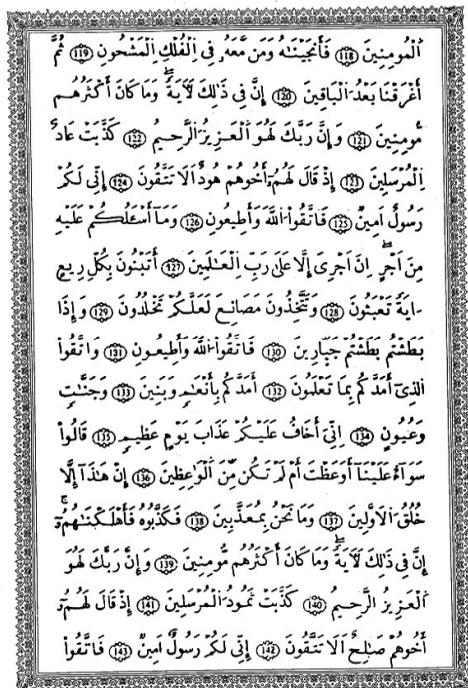 اَلْمُومِنِينَ ١١٨ فَأَنجَيْنَٰهُ وَمَن مَّعَهُۥ فِى اِلْفُلْكِ اِلْمَشْحُونِ ١١٩ ثُمَّ
أَغْرَقْنَا بَعْدُ اَلْبَاقِينَ ١٢٠ إِنَّ فِى ذَٰلِكَ لَأٓيَةً وَمَا كَانَ أَكْثَرُهُم
مُّومِنِينَ ١٢١ وَإِنَّ رَبَّكَ لَهُوَ اَلْعَزِيزُ الرَّحِيمُ ١٢٢ كَذَّبَتْ عَادٌ
اِلْمُرْسَلِينَ ١٢٣ إِذْ قَالَ لَهُمُۥٓ أَخُوهُمْ هُودٌ اَلَا تَتَّقُونَ ١٢٤ إِنِّى لَكُمْ
رَسُولٌ اَمِينٌ ١٢٥ فَاتَّقُواْ اللَّهَ وَأَطِيعُونِ ١٢٦ وَمَآ أَسْـَٔلُكُمْ عَلَيْهِ
مِنَ اَجْرٍ اِنَ اَجْرِىَ إِلَّا عَلَىٰ رَبِّ اِلْعَٰلَمِينَ ١٢٧ أَتَبْنُونَ بِكُلِّ رِيعٍ
ـَايَةً تَعْبَثُونَ ١٢٨ وَتَتَّخِذُونَ مَصَانِعَ لَعَلَّكُمْ تَخْلُدُونَ ١٢٩ وَإِذَا
بَطَشْتُم بَطَشْتُمْ جَبَّارِينَ ١٣٠ فَاتَّقُواْ اللَّهَ وَأَطِيعُونِ ١٣١ وَاتَّقُواْ
الذِىٓ أَمَدَّكُم بِمَا تَعْلَمُونَ ١٣٢ أَمَدَّكُم بِأَنْعَٰمٍ وَبَنِينَ ١٣٣ وَجَنَّٰتٍ
وَعُيُونٍ ١٣٤ اِنِّىَ أَخَافُ عَلَيْكُمْ عَذَابَ يَوْمٍ عَظِيمٍ ١٣٥ قَالُواْ
سَوَآءٌ عَلَيْنَآ أَوَعَظْتَ أَمْ لَمْ تَكُن مِّنَ اَلْوَٰعِظِينَ ١٣٦ إِنْ هَٰذَآ إِلَّا
خُلُقُ اَلَاوَّلِينَ ١٣٧ وَمَا نَحْنُ بِمُعَذَّبِينَ ١٣٨ فَكَذَّبُوهُ فَأَهْلَكْنَٰهُمُۥٓ
إِنَّ فِى ذَٰلِكَ لَأٓيَةً وَمَا كَانَ أَكْثَرُهُم مُّومِنِينَ ١٣٩ وَإِنَّ رَبَّكَ لَهُوَ
اَلْعَزِيزُ الرَّحِيمُ ١٤٠ كَذَّبَتْ ثَمُودُ اُلْمُرْسَلِينَ ١٤١ إِذْ قَالَ لَهُمُۥٓ
أَخُوهُمْ صَٰلِحٌ اَلَا تَتَّقُونَ ١٤٢ إِنِّى لَكُمْ رَسُولٌ اَمِينٌ ١٤٣ فَاتَّقُواْ